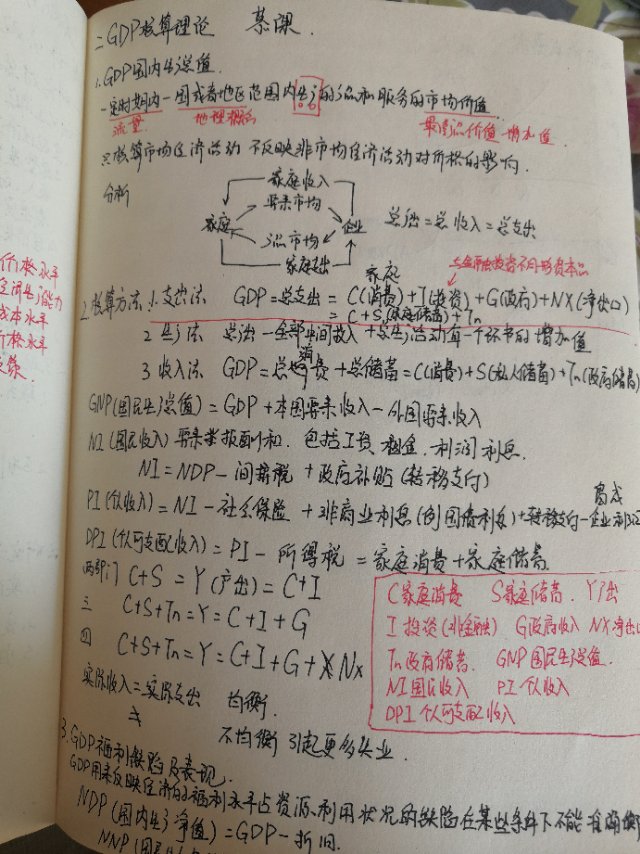 二 GDP核算理论 慕课.
1. GDP国内生产总值.
一定时期内一国或者地区范围内生产的产品和服务的市场价值.
流量. 地理概念 最终产品价值 增加值
只核算市场经济活动 不反映非市场经济活动对价格的影响.
分析
家庭收入
要素市场
家庭 企业 总产出=总收入=总支出
产品市场
家庭支出
家庭 与金融投资不同 形资本品
2. 核算方法 1. 支出法 GDP=总支出=C(消费)+I(投资)+G(政府)+NX(净出口)
=C+S(家庭储蓄)+Tn
2 生产法 总产出-全部中间投入 +总生产活动每一个环节的增加值
3 收入法 GDP=总消费+总储蓄=C(消费)+S(私人储蓄)+Tn(政府储蓄)
GNP(国民生产总值)=GDP+本国要素收入-外国要素收入
NI(国民收入) 要素报酬和. 包括工资 租金. 利润 利息.
NI=NDP-间接税+政府补贴(转移支付)
PI(个人收入)=NI-社会保险+非商业利息(例国债利息)+转移支付-企业利润
DPI(个人可支配收入)=PI-所得税=家庭消费+家庭储蓄
两部门 C+S=Y(产出)=C+I
三 C+S+Tn=Y=C+I+G
四 C+S+Tn=Y=C+I+G+NX
C家庭消费 S家庭储蓄. Y产出
I 投资(非金融) G政府收入 NX净出口
Tn政府储蓄. GNP国民生产总值.
NI国民收入 PI个人收入
DPI个人可支配收入
实际收入=实际支出 均衡.
≠ 不均衡 引起更多失业.
3. GDP福利缺陷及表现.
GDP用来反映经济的福利水平占资源利用状况的缺陷在某些条件下不能有
NDP(国内生产净值)=GDP-折旧.
价格水平
成本水平
价格水平